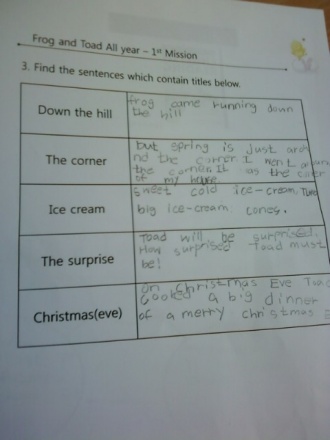 Frog and Toad All year – 1st Mission
3. Find the sentences which contain titles below.
Down the hill
frog came running down
the hill
The corner
but spring is just arou
nd the corner. I went aroun
the corner. It as the corer
of my house.
Ice cream
sweet cold ice-cream. Two
big ice-cream cones.
The surprise
Toad will be surprised.
How surprised Toad must
be!
Christmas(eve)
on christmas Eve Toad
cooked a big dinner
of a merry christmas